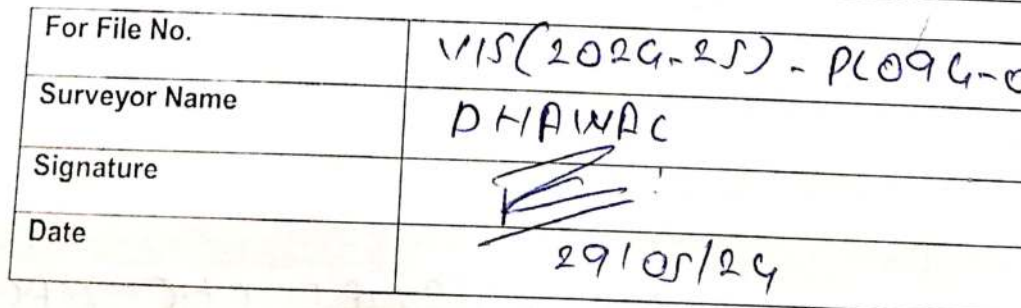 For File No. VIS(2024-25)-PL094-0
Surveyor Name DHAWAL
Signature
Date 29/05/24